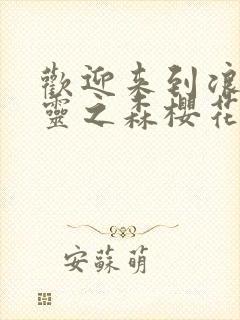 歡迎来到浪
靈之森櫻花
安蘇萌